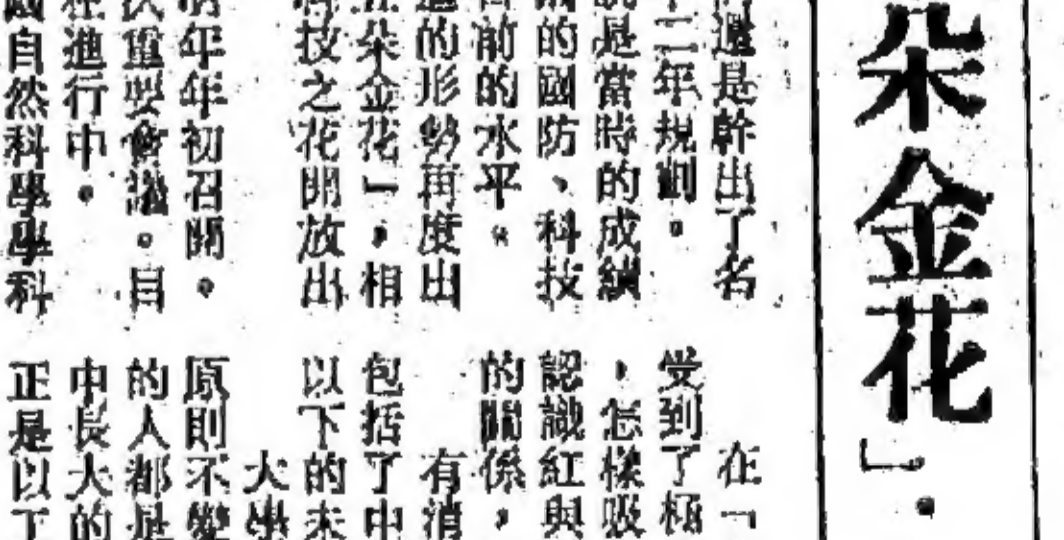 朵金花」·
還是幹出了名
十二年規劃。
說是當時的成績
的國防、科技
前的水平。
的形勢再度出
朵金花」,相
技之花開放出
年年初召開。
重要會議。目
進行中。
自然科學學科
在「
受到了極
,怎樣吸
認識紅與
的關係,
有消
包括了中
以下的未
大學
原則不變
的人都是
中長大的
正是以工